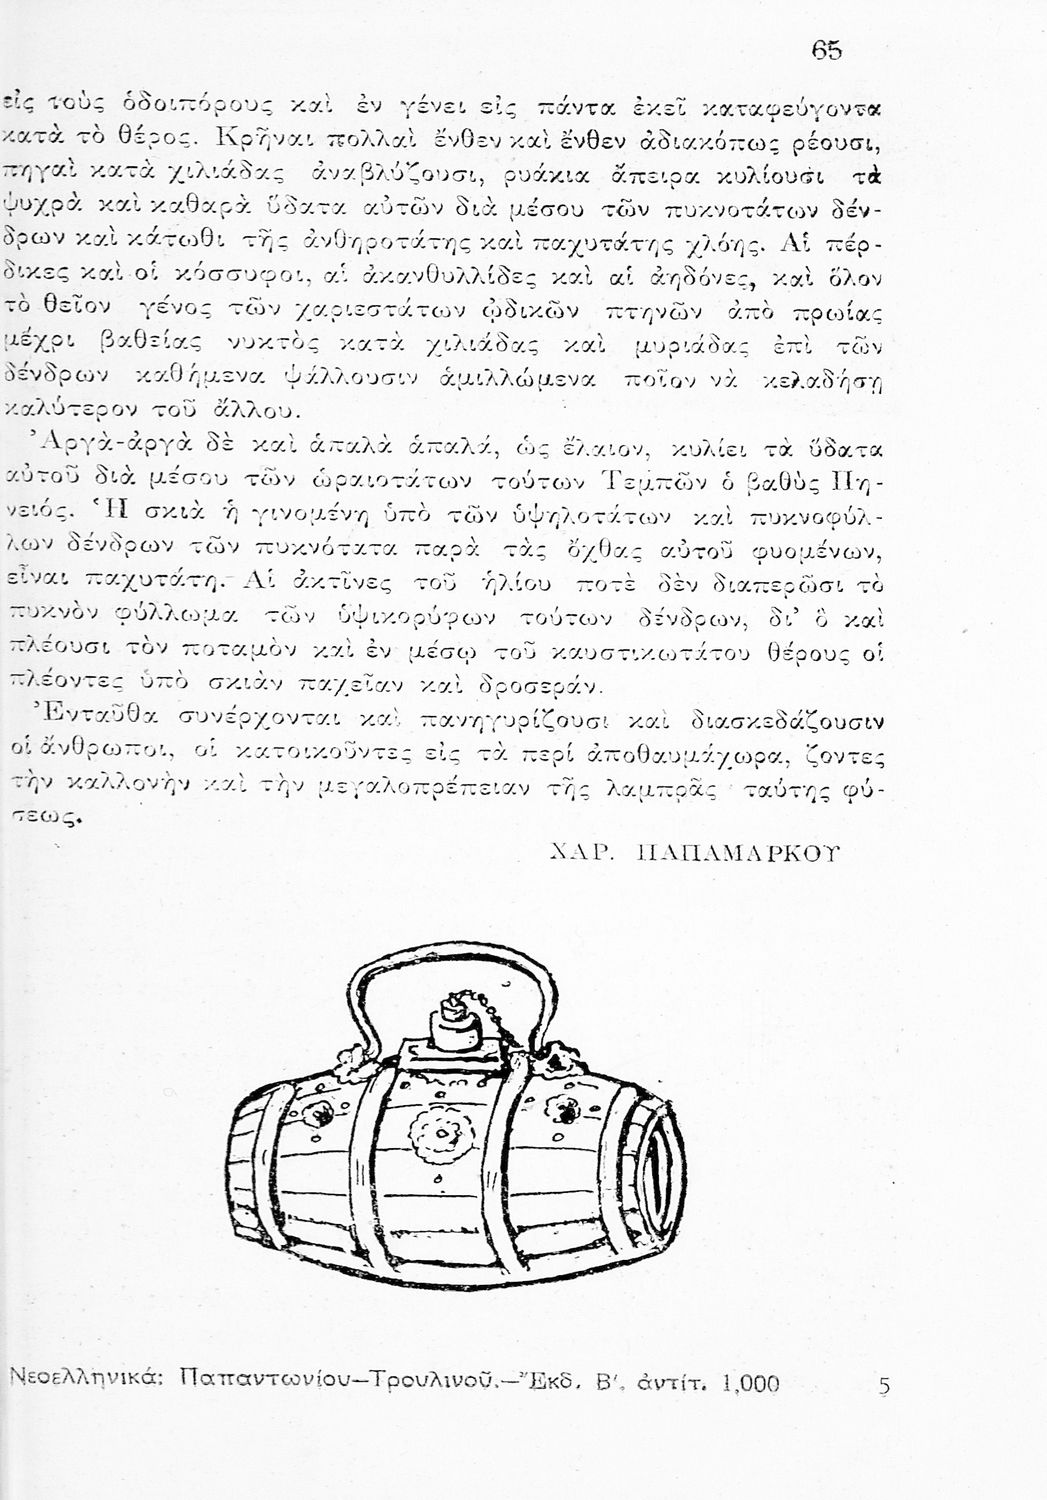 65
εἰς τοὺς ὁδοιπόρους καὶ ἐν γένει εἰς πάντα ἐκεῖ καταφεύγοντα
κατὰ τὸ θέρος. Κρῆναι πολλαὶ ἔνθεν καὶ ἔνθεν ἀδιακόπως ρέουσι,
πηγαὶ κατὰ χιλιάδας ἀναβλύζουσι, ρυάκια ἄπειρα κυλίουσι τὰ
ψυχρὰ καὶ καθαρὰ ὕδατα αὐτῶν διὰ μέσου τῶν πυκνοτάτων δέν-
δρων καὶ κάτωθι τῆς ἀνθηροτάτης καὶ παχυτάτης χλόης. Αἱ πέρ-
δικες καὶ οἱ κόσσυφοι, αἱ ἀκανθυλλίδες καὶ αἱ ἀηδόνες, καὶ ὅλον
τὸ θεῖον γένος τῶν χαριεστάτων ᾠδικῶν πτηνῶν ἀπὸ πρωίας
μέχρι βαθείας νυκτὸς κατὰ χιλιάδας καὶ μυριάδας ἐπὶ τῶν
δένδρων καθήμενα ψάλλουσιν ἁμιλλώμενα ποῖον νὰ κελαδήσῃ
καλύτερον τοῦ ἄλλου.
Ἀργὰ-ἀργὰ δὲ καὶ ἁπαλὰ ἁπαλά, ὡς ἔλαιον, κυλίει τὰ ὕδατα
αὐτοῦ διὰ μέσου τῶν ὡραιοτάτων τούτων Τεμπῶν ὁ βαθὺς Πη-
νειός. Ἡ σκιὰ ἡ γινομένη ὑπὸ τῶν ὑψηλοτάτων καὶ πυκνοφύλ-
λων δένδρων τῶν πυκνότατα παρὰ τὰς ὄχθας αὐτοῦ φυομένων,
εἶναι παχυτάτη. Αἱ ἀκτῖνες τοῦ ἡλίου ποτὲ δὲν διαπερῶσι τὸ
πυκνὸν φύλλωμα τῶν ὑψικορύφων τούτων δένδρων, δι' ὃ καὶ
πλέουσι τὸν ποταμὸν καὶ ἐν μέσῳ τοῦ καυστικωτάτου θέρους οἱ
πλέοντες ὑπὸ σκιὰν παχεῖαν καὶ δροσεράν.
Ἐνταῦθα συνέρχονται καὶ πανηγυρίζουσι καὶ διασκεδάζουσιν
οἱ ἄνθρωποι, οἱ κατοικοῦντες εἰς τὰ περί ἀποθαυμάχωρα, ζοντες
τὴν καλλονὴν καὶ τὴν μεγαλοπρέπειαν τῆς λαμπρᾶς ταύτης φύ-
σεως.
ΧΑΡ. ΠΑΠΑΜΑΡΚΟΥ
Νεοελληνικά: Παπαντωνίου—Τρουλινοῦ.—Ἔκδ. Β', ἀντίτ. 1,000 5